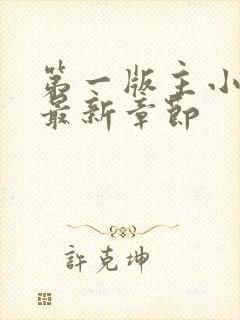 第一版主小
最新章節
許克坤